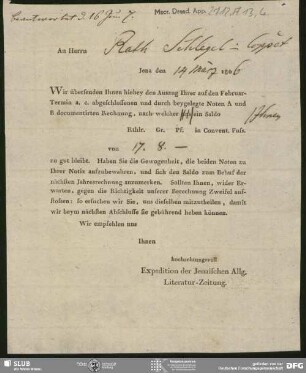 Beantwortet d. 16 Jun. 7.
Mscr. Dresd. App.
An Herrn Rath Schlegel in Coppet
Jena den 14 März 1806
Wir übersenden Ihnen hiebey den Auszug Ihrer auf den Februar-
Termin a. c. abgeschlossenen und durch beygelegte Noten A und
B documentirten Rechnung, nach welcher Ihnen ein Saldo
Rthlr. Gr. Pf. in Convent. Fuss.
von 17. 8. —
zu gut bleibt. Haben Sie die Gewogenheit, die beiden Noten zu
Ihrer Notiz aufzubewahren, und sich den Saldo zum Behuf der
nächsten Jahresrechnung anzumerken. Sollten Ihnen, wider Er-
warten, gegen die Richtigkeit unserer Berechnung Zweifel auf-
stoßen: so ersuchen wir Sie, uns dieselben mitzutheilen, damit
wir beym nächsten Abschlusse sie gebührend heben können.
Wir empfehlen uns
Ihnen
hochachtungsvoll
Expedition der Jenaischen Allg.
Literatur-Zeitung.
SLUB
Wir führen Wissen.
gefördert von der
DFG
Deutsche
Forschungsgemeinschaft